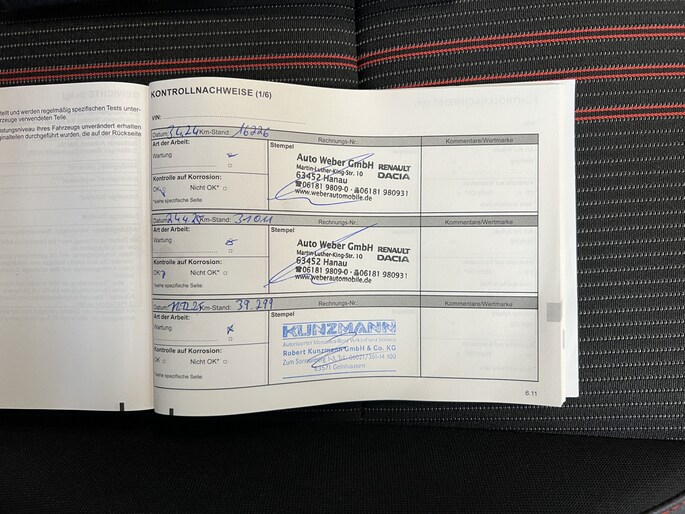 teilt und werden regelmäßig spezifischen Tests unter-
rzeuge verwendeten Teile.
istungsniveau Ihres Fahrzeugs unverändert erhalten
ginalteilen durchgeführt wurden, die auf der Rückseite
KONTROLLNACHWEISE (1/6)
VIN:
Datum: 3.4.24 Km-Stand: 16226 Rechnungs-Nr.: Kommentare/Wertmarke
Art der Arbeit:
Wartung
Kontrolle auf Korrosion:
OK Nicht OK*
*siehe spezifische Seite
Stempel
Auto Weber GmbH
Martin-Luther-King-Str. 10
63452 Hanau
☎06181 9809-0 · 06181 980931
www.weberautomobile.de
RENAULT
DACIA
Datum: 24.4.25 Km-Stand: 31011 Rechnungs-Nr.: Kommentare/Wertmarke
Art der Arbeit:
Wartung
Kontrolle auf Korrosion:
OK Nicht OK*
*siehe spezifische Seite
Stempel
Auto Weber GmbH
Martin-Luther-King-Str. 10
63452 Hanau
☎06181 9809-0 · 06181 980931
www.weberautomobile.de
RENAULT
DACIA
Datum: Km-Stand: 39.299 Rechnungs-Nr.: Kommentare/Wertmarke
Art der Arbeit:
Wartung
Kontrolle auf Korrosion:
OK Nicht OK*
*siehe spezifische Seite
Stempel
KUNZMANN
Robert Kunzmann GmbH & Co. KG
63571 Gelnhausen
6.11